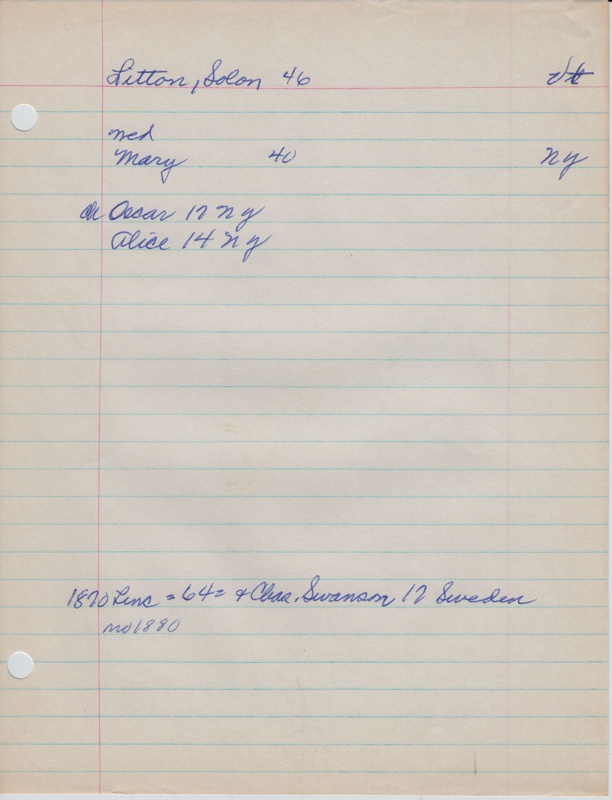 Litton, Solon 46 Vt
md
Mary 40 NY
ch Oscar 17 NY
Alice 14 NY
1870 Linc = 64 = & Chas. Swanson 17 Sweden
no 1880